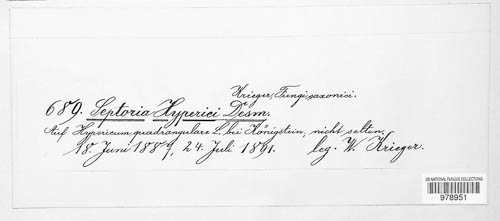 Krieger, Fungi saxonici.
689. Septoria Hyperici Desm.
Auf Hypericum quadrangulare L. bei Königstein, nicht selten,
18. Juni 1889, 24. Juli 1891. leg. W. Krieger.
US NATIONAL FUNGUS COLLECTIONS
978951